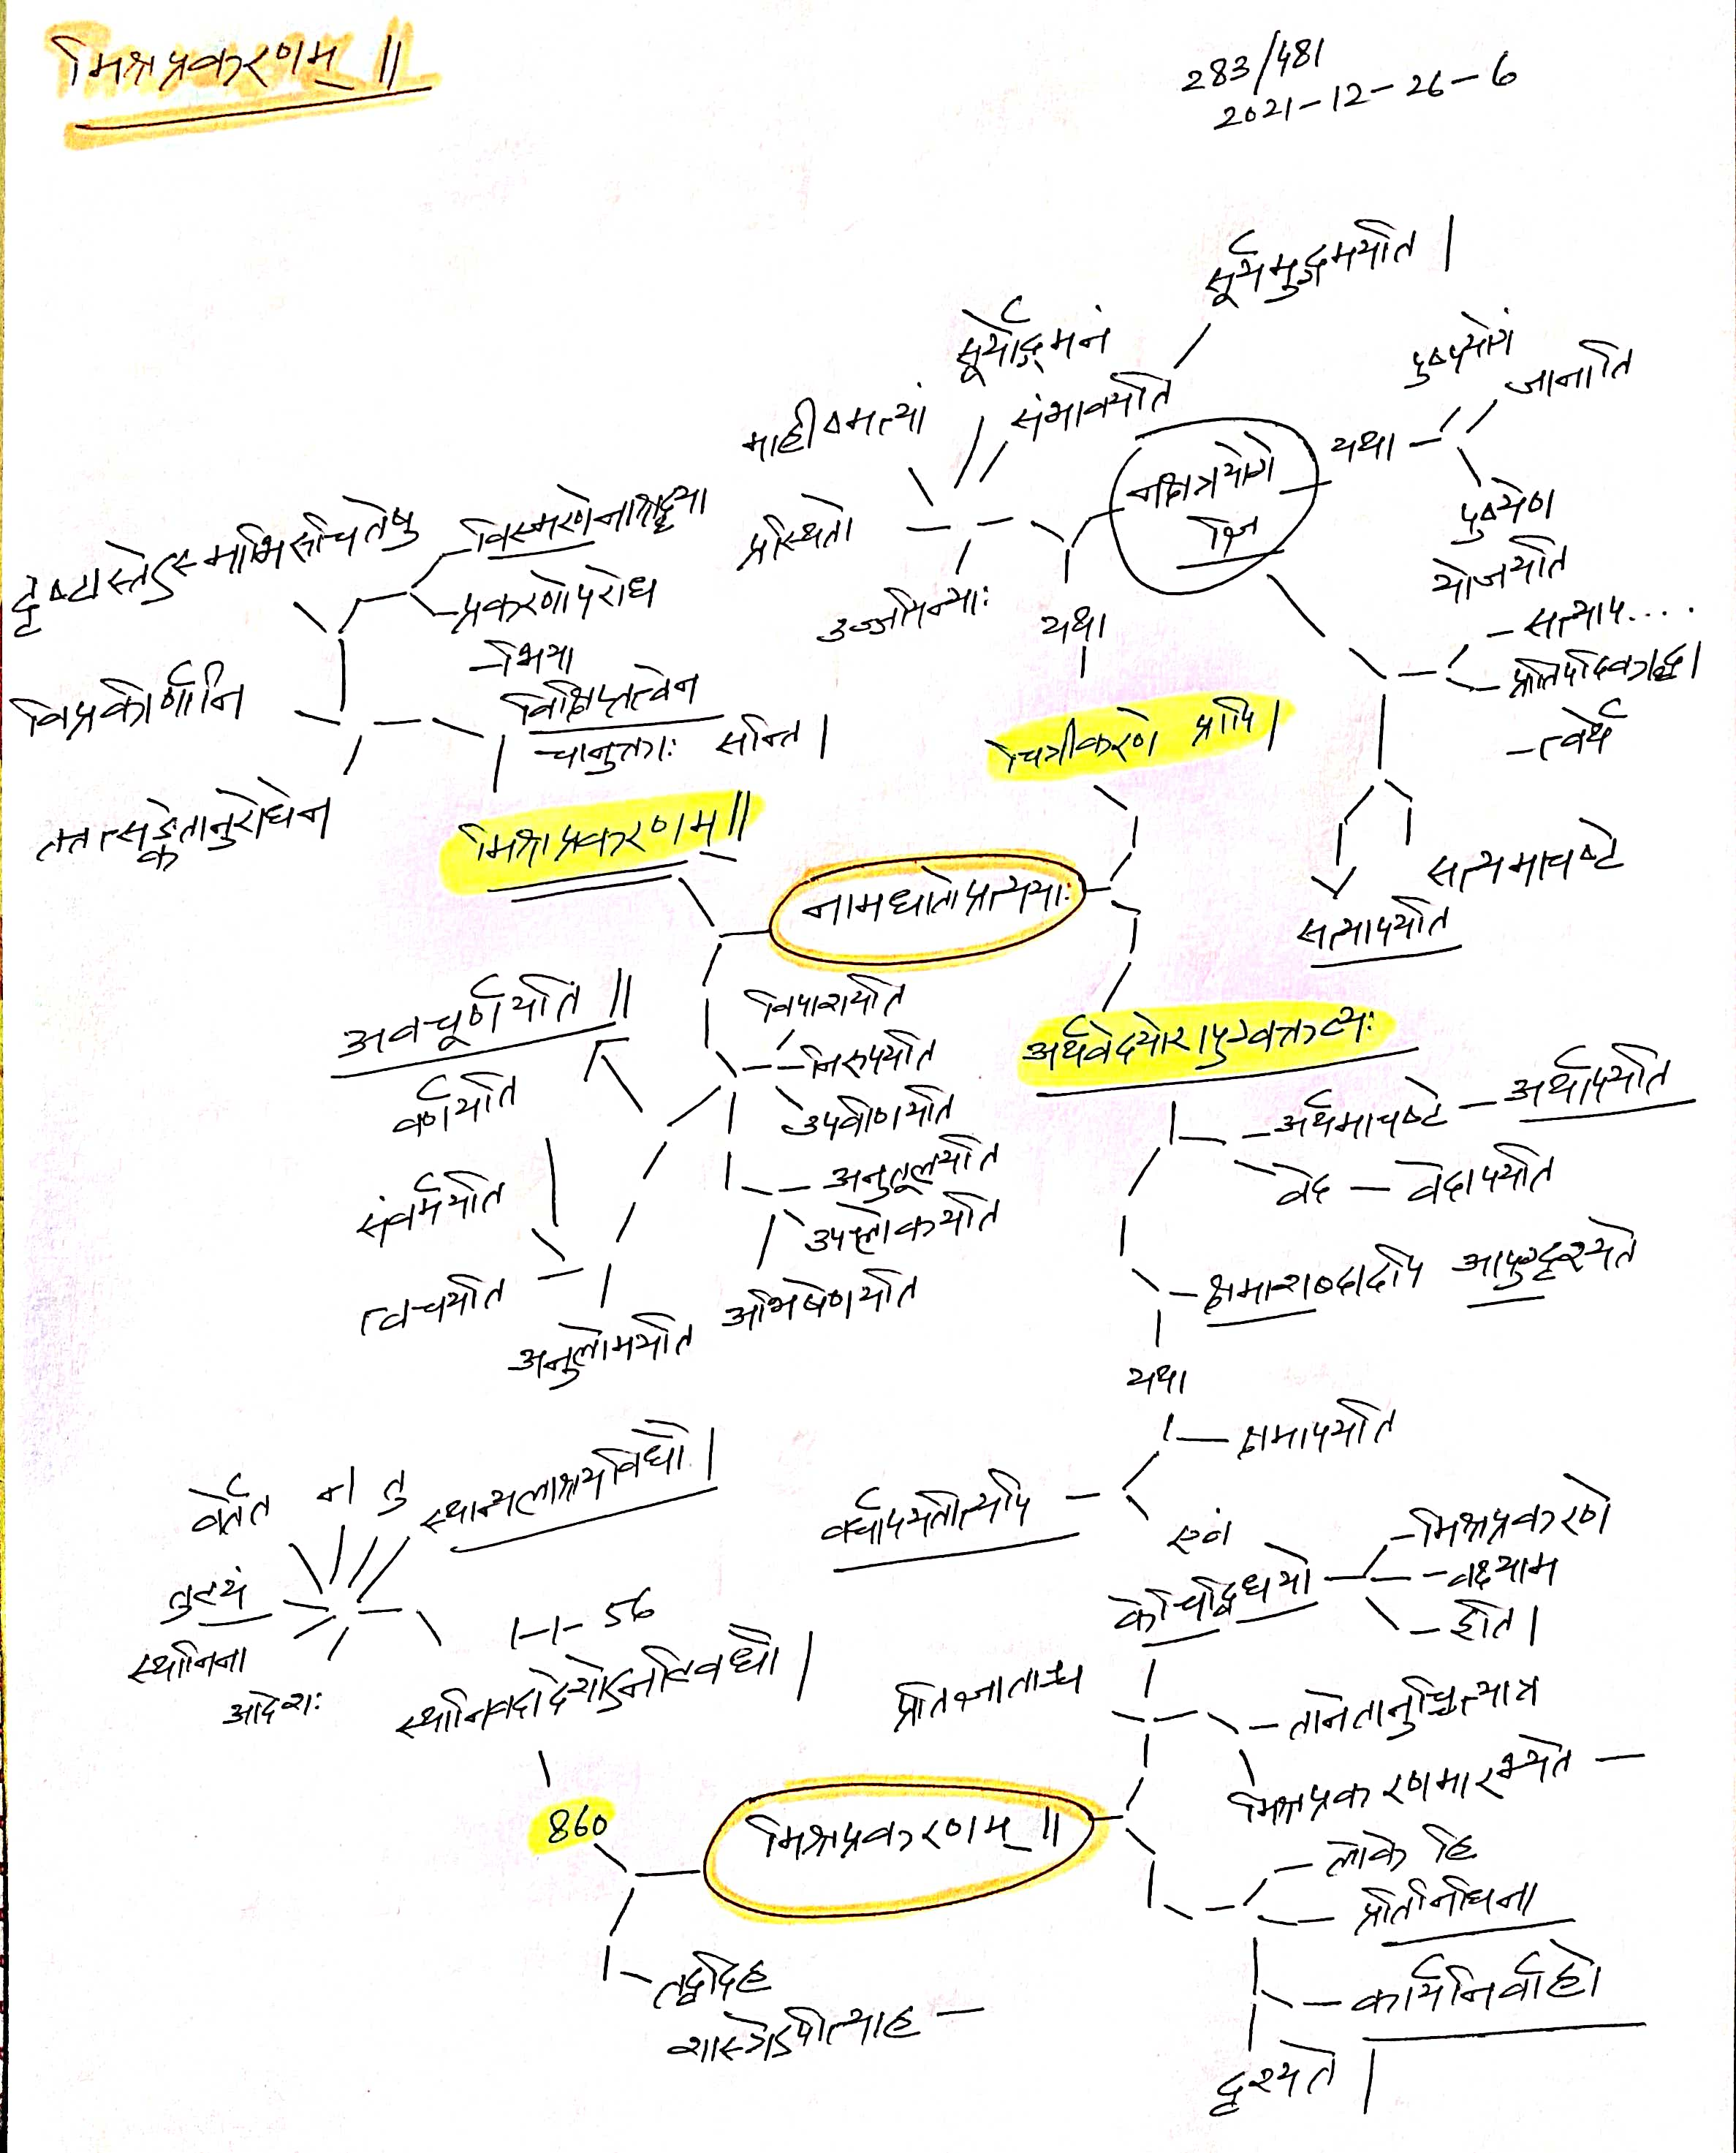 मिश्रप्रकरणम् ॥
283/481
2021-12-26-6
सूर्यमुद्गमयति |
सूर्योद्गमनं
संभावयति
माहीष्मत्यां
प्रस्थितो
उज्जयिन्याः
यथा
चित्रीकरणे प्रापि |
नक्षत्रयोगे
ज्ञि
यथा
पुष्पयोगं
जानाति
पुष्येण
योजयति
सत्याप....
प्रातिपदिकाद्धा
त्वर्थे
सत्यमाचष्टे
सत्यापयति
दृष्टास्तेऽस्माभिः संचितेषु
विस्मरणेनाश्रद्धया
प्रकरणोपरोध
भिया
विक्षिप्तत्वेन
चानुक्ताः सन्ति |
विप्रकीर्णानि
तत्तत्सङ्केतानुरोधेन
मिश्रप्रकरणम् ॥
नामधातोप्रत्ययाः
अवचूर्णयति ॥
वर्णयति
संवर्मयति
त्वचयति
अनुलोमयति
विपाशयति
निरूपयति
उपवीणयति
अनुतूलयति
उपश्लोकयति
अभिषेणयति
अर्थवेदयोरापुग्वक्तव्यः
अर्थमाचष्टे — अर्थापयति
वेद — वेदापयति
क्षमाशब्दादपि आपुग्दृश्यते
यथा
क्षमापयति
वर्धापयतीत्यपि
एवं
केचिद्विधयो
मिश्रप्रकरणे
वक्ष्याम
इति |
प्रतिज्ञाताश्च
तानेतानुद्धृत्यात्र
मिश्रप्रकरणमारभ्यते —
वर्तत न तु
स्थान्यलाश्रयविधौ |
तुल्यं
स्थानिना
आदेशः
1-1-56
स्थानिवदादेशोऽनल्विधौ |
860
मिश्रप्रकरणम् ॥
लोके हि
प्रतिनिधिना
कार्यनिर्वाहो
दृश्यते |
तद्वदिह
शास्त्रेऽपीत्याह —